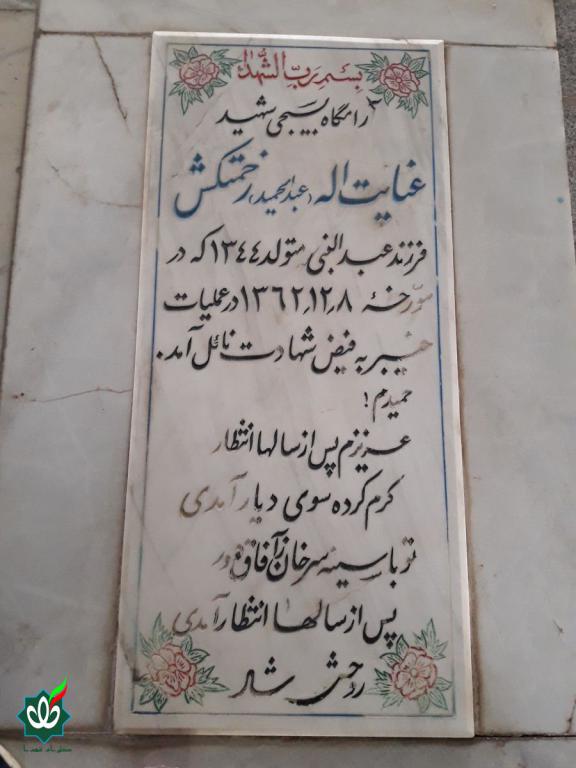 بسم رب الشهدا
آرامگاه بسیجی شهید
عنایت اله (عبدالحمید) زحمتکش
فرزند عبدالنبی متولد ۱۳۴۴ که در
مورخهٔ ۱۳۶۲٫۱۲٫۸ در عملیات
خیبر به فیض شهادت نائل آمد.
حمیدم!
عزیزم پس از سالها انتظار
کرم کرده سوی دیار آمدی
تو با سینه سرخان ز آفاق
پس از سالها انتظار آمدی
روحش شاد